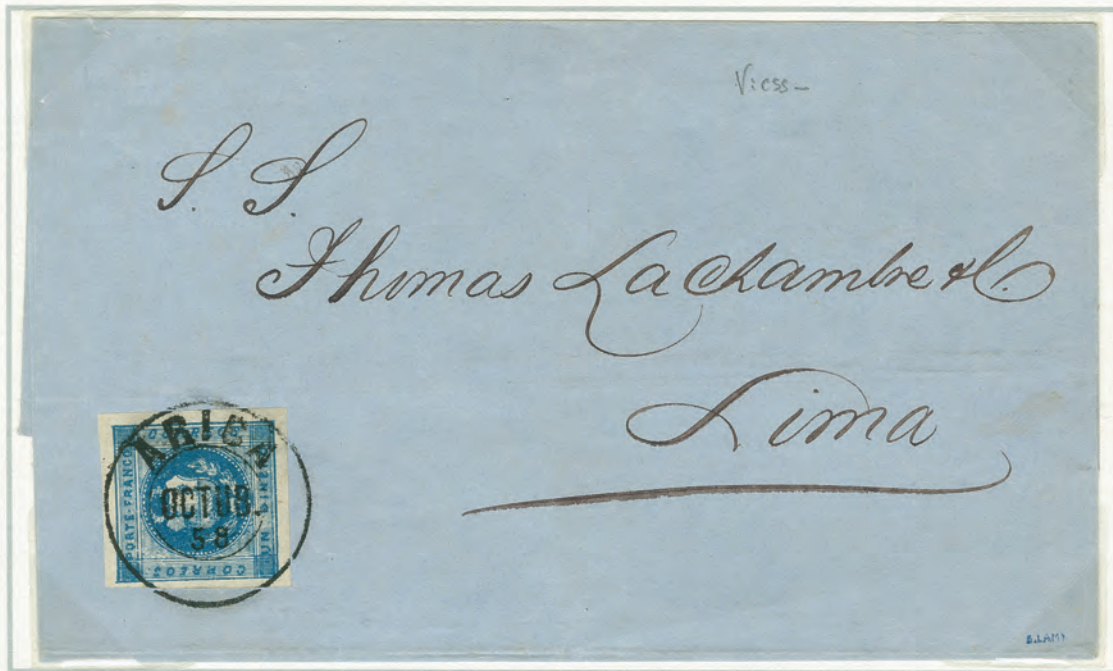 Vicss-
S. S.
Thomas Lachambre & C.
Lima
ARICA
OCTUB.
58
PORTE-FRANCO
CORREOS.
UN DINERO
B.LAMY